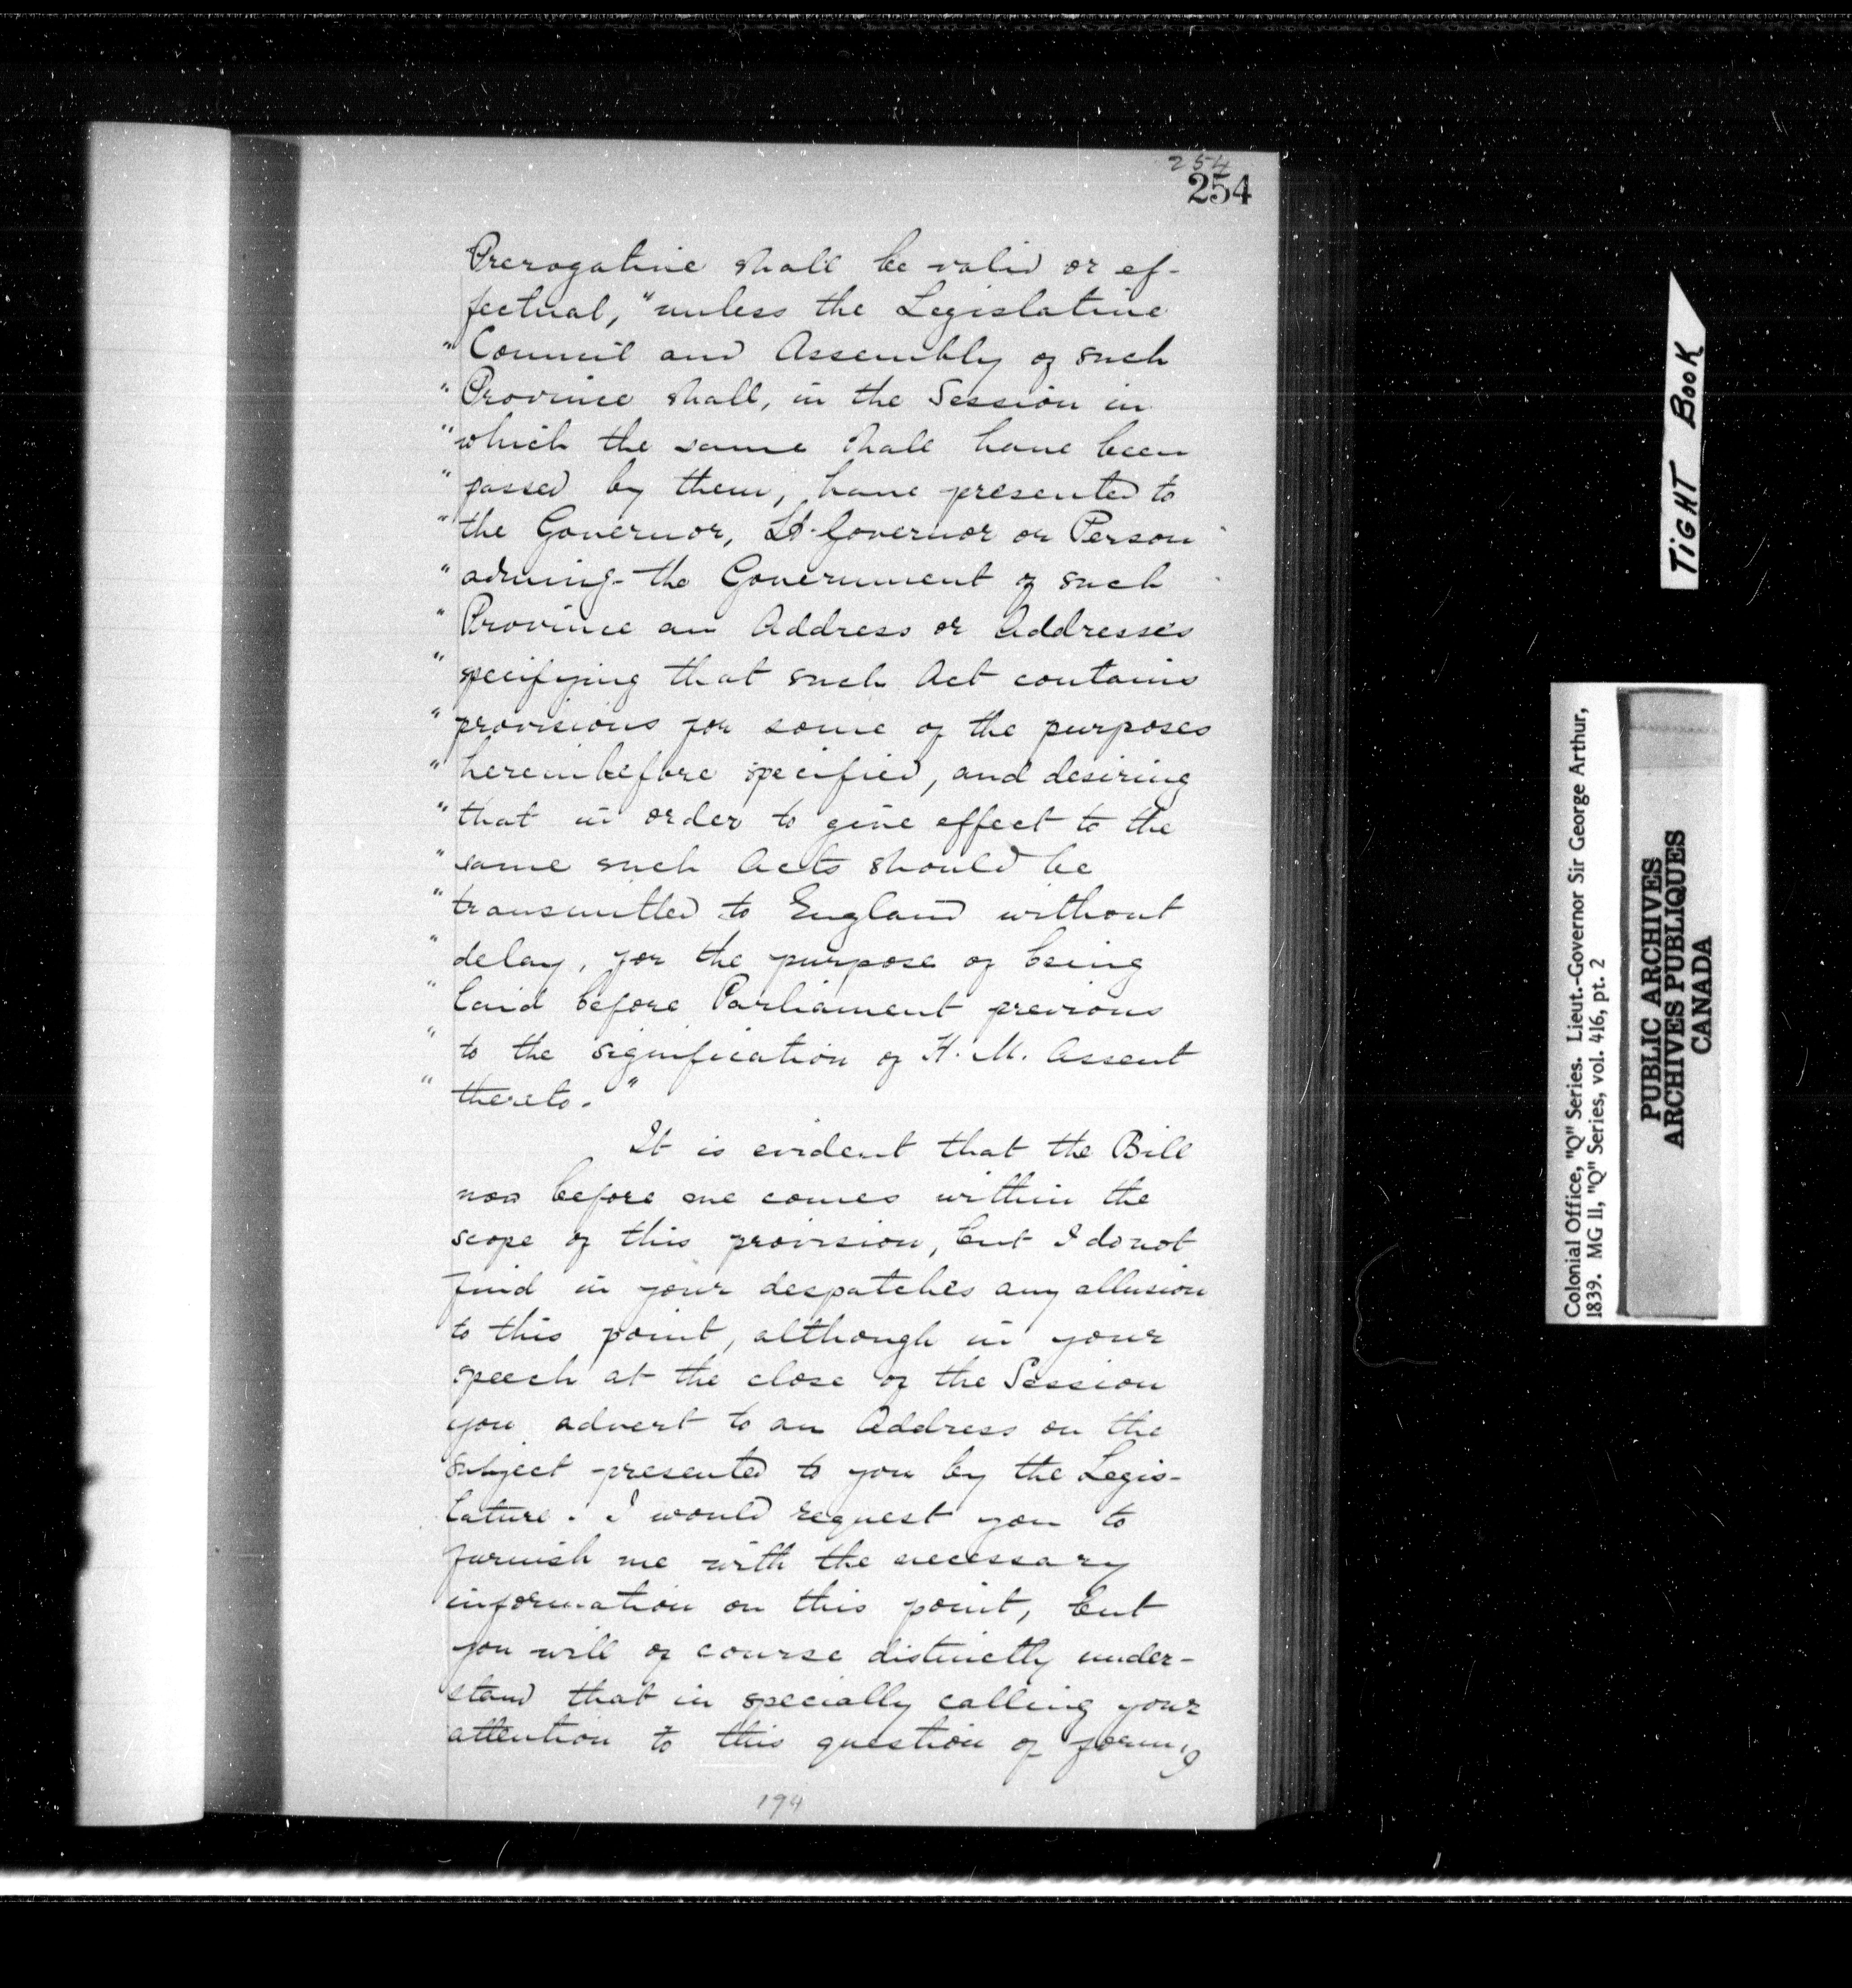 254
254
Prerogative shall be valid or ef-
fectual, "unless the Legislative
" Council and Assembly of such
" Province shall, in the Session in
" which the same shall have been
" passed by them, have presented to
" the Governor, Lt. Governor or Person
" adming. the Government of such
" Province an Address or Addresses
" specifying that such Act contains
" provisions for some of the purposes
" hereinbefore specified, and desiring
" that in order to give effect to the
" same such Acts should be
" transmitted to England without
" delay, for the purpose of being
" laid before Parliament previous
" to the signification of H. M. Assent
" thereto."
It is evident that the Bill
now before me comes within the
scope of this provision, but I do not
find in your despatches any allusion
to this point, although in your
speech at the close of the Session
you advert to an Address on the
subject presented to you by the Legis-
lature. I would request you to
furnish me with the necessary
information on this point, but
you will of course distinctly under-
stand that in specially calling your
attention to this question of form,
194
TIGHT BOOK
Colonial Office, "Q" Series. Lieut.-Governor Sir George Arthur,
1839. MG 11, "Q" Series, vol. 416, pt. 2
PUBLIC ARCHIVES
ARCHIVES PUBLIQUES
CANADA